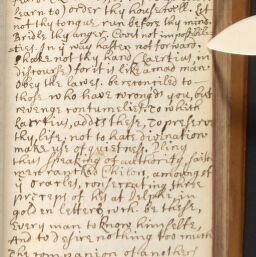 learn to order thy house well. Let
not thy tongue run before thy mind.
Bridle thy anger. Covet not impossibi-
-ities. In yͤ way hasten not forward.
shake not thy hand (Laertius, in
discourse) for it is like a mad man.
Obey the lawes. be reconciled to
those who have wronged you, but
revenge contumelies. To which
Laertius, adds these, To preserve
thy life, not to hate divination
make use of quietness. Pliny
thus speaking of authority, saith
men ranked Chilon, amoung yͤ
oracles, consecrating three
precepts of his at Delphi, in
gold en letters wch. be these,
Every man to know himselfe,
And to desire nothing too much
The companion of anothers